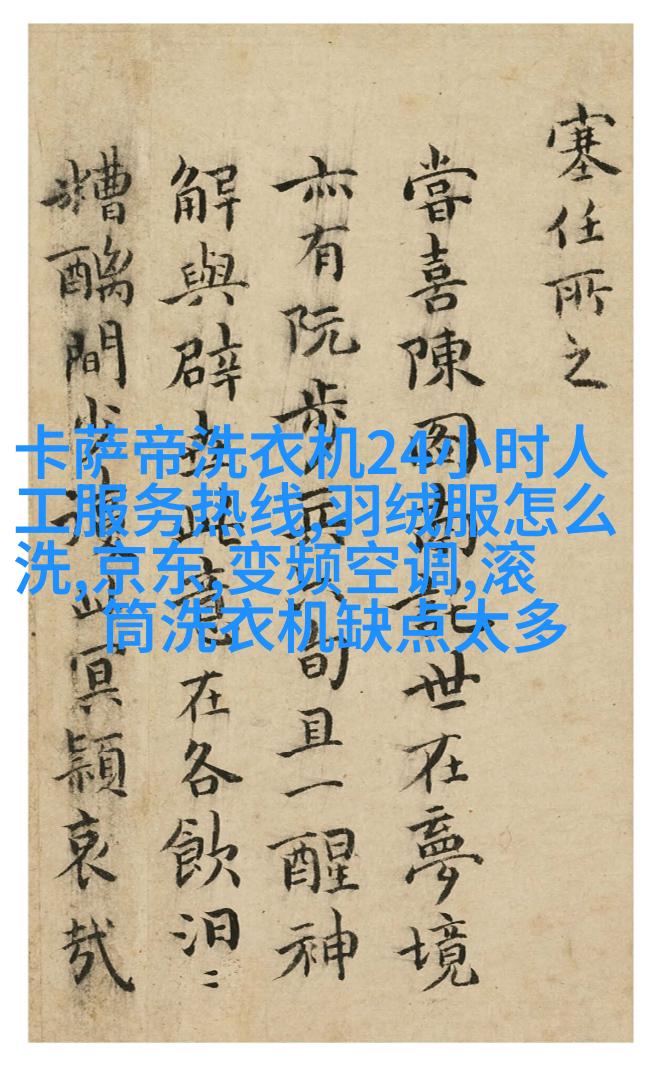 塞任所之
嘗喜陳圖南託世在夢境
亦有阮步兵六旬且一醒神
解與辟此意在各飲汩〻
糟醨間此冥穎哀哉
卡萨帝洗衣机24小时人
工服务热线,羽绒服怎么
洗,京东,变频空调,滚
筒洗衣机缺点太多